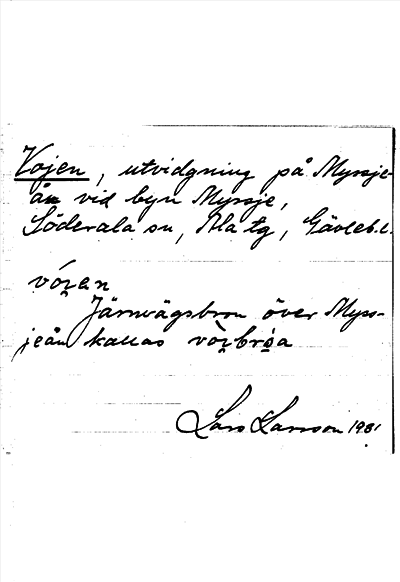 Vojen, utvidgning på Myssje-
ån vid byn Myssje,
Söderala sn, Ala tg, Gävleb.l.
vóı̯en
Järnvägsbron över Myss-
jeån kallas vòı̯brǫ́a
Lars Larsson 1981